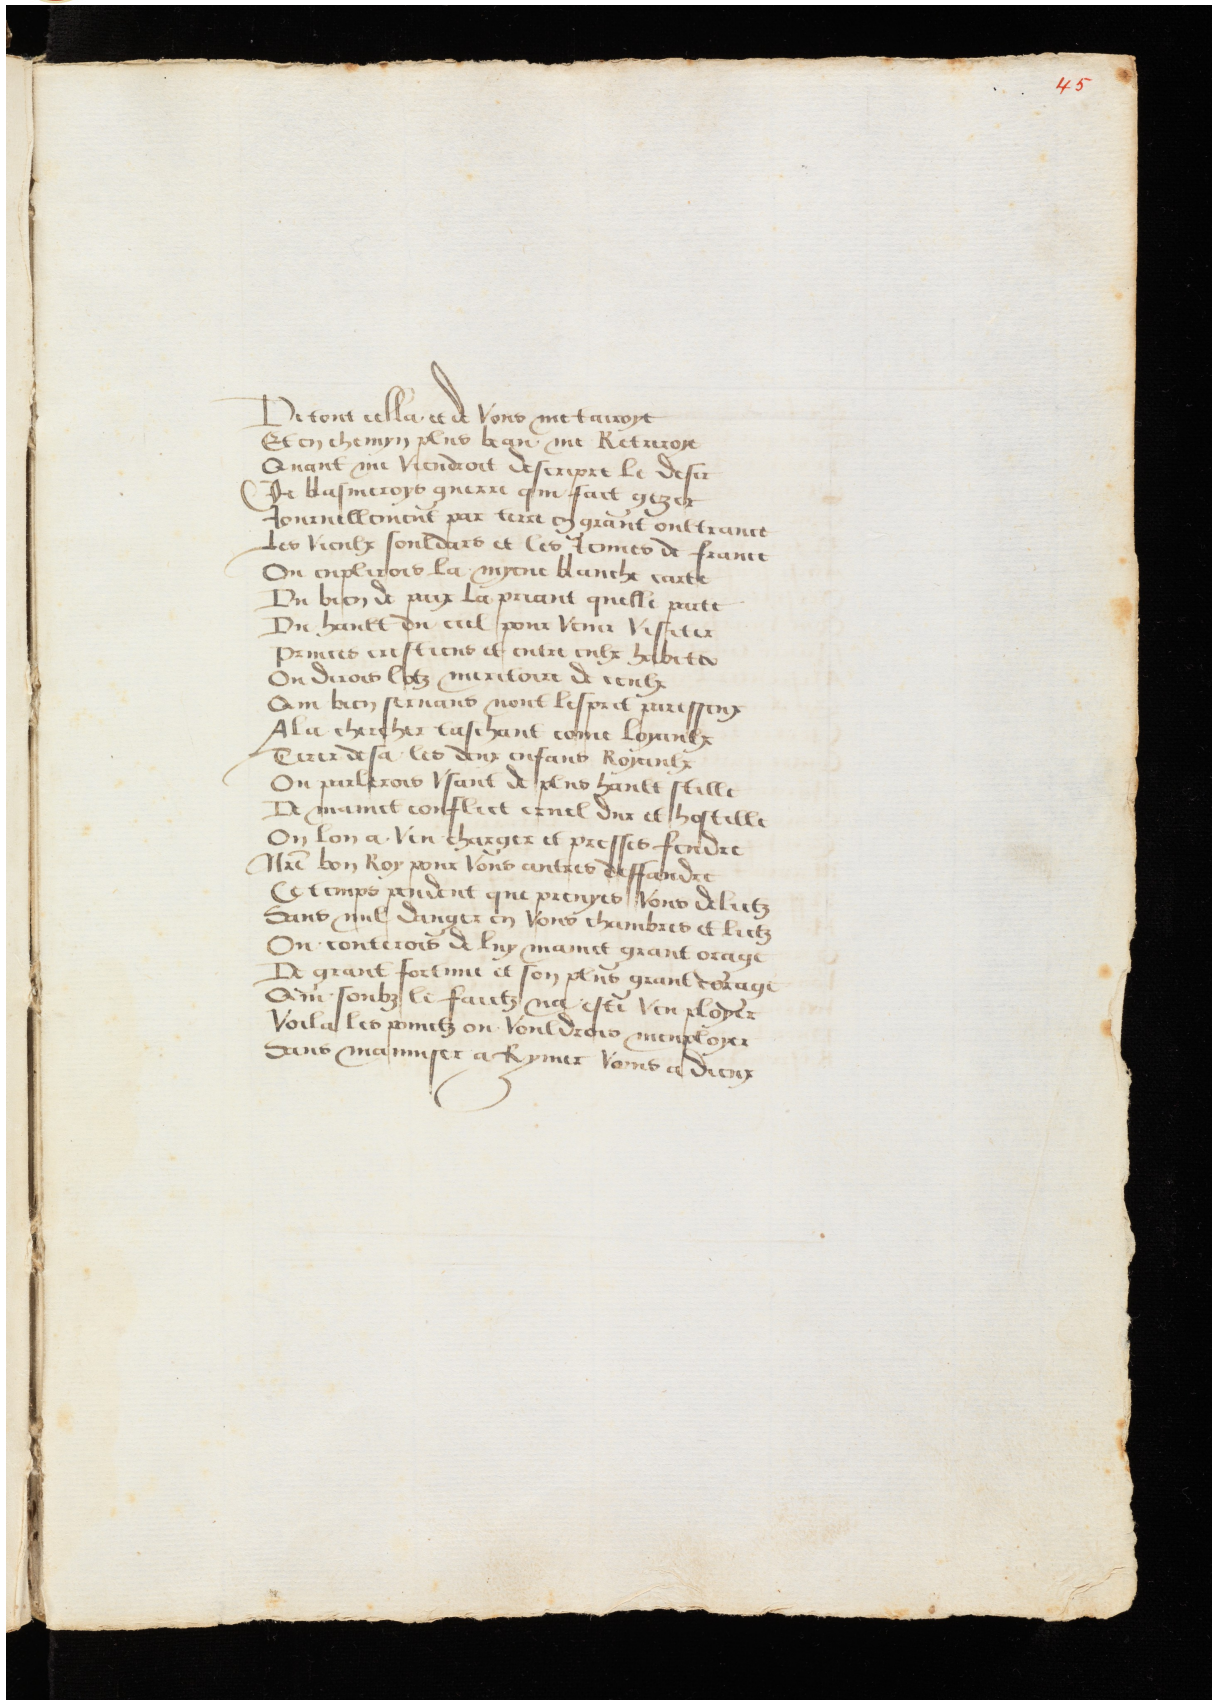 45
De tout cella et de Vous me tairoye
Et en chemyn plus beau me Retiroye
Quant me Viendroit descripre le desir
Je blasmeroys guerre qui fait gezer
Journellement par terre en grant oultrance
Les Vieulx souldars et les Jeunes de france
Ou enplirois la myene blanche carte
Du bien de paix la priant quelle parte
Du hault du ciel pour Venir Visiter
Princes crestiens et entre eulx habiter
Ou dirois lotz meritoire de ceulx
Qui bien servans nont lesprit paresseux
A la chercher taschant come loyaulx
Tirer desa les deux enfans Royaulx
Ou parlerois Vsant de plus hault stille
De maint conflict cruel dur et hostille
Ou lon a Veu charger et presses fendre
Nre bon Roy pour Vous autres deffandre
Ce temps pendent que prenyes Vous delictz
Sans nul danger en Vous chambres et lictz
Ou conterois de luy maint grant orage
De grant fortune et son plus grant corage
Qui soubz le faictz na este Veu ployer
Voila les pointz ou Vouldrois menployer
Sans mamuser a Rymer Voms a dieux